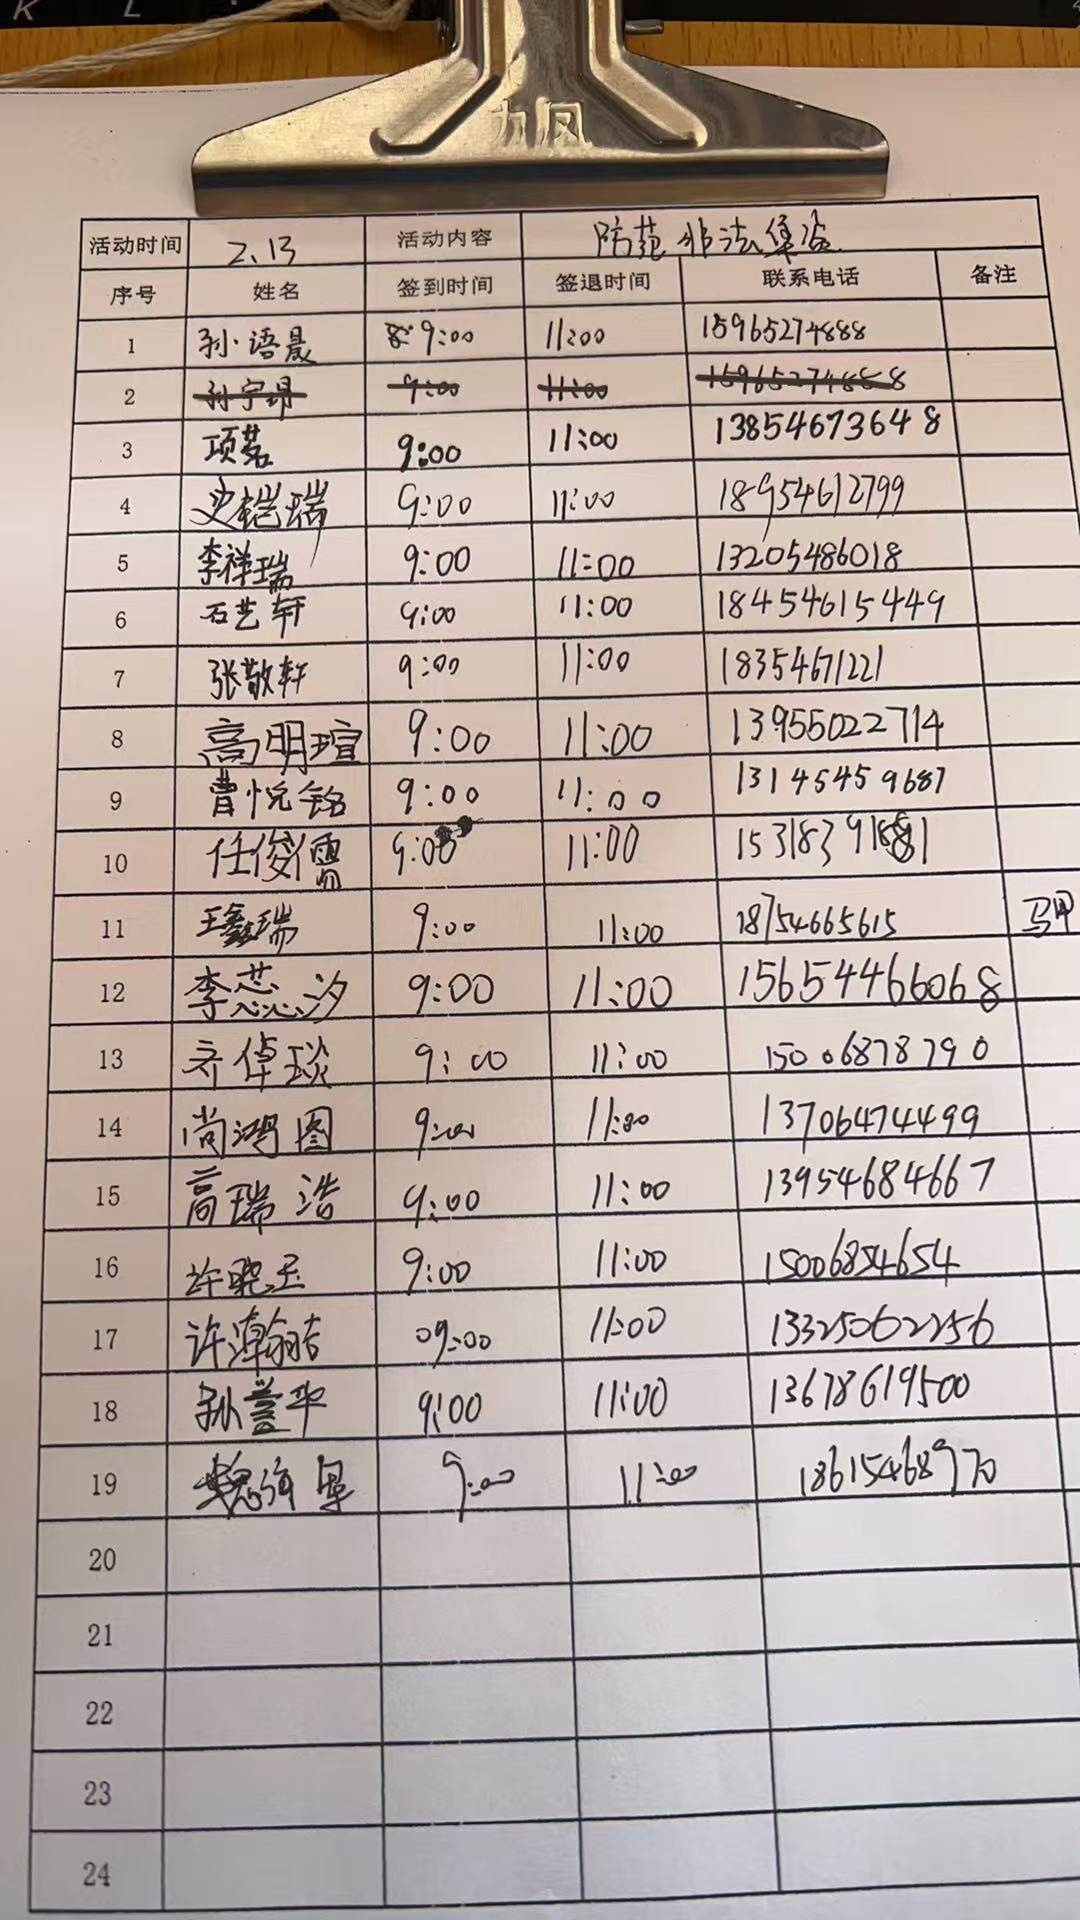 K L
力风
活动时间 2.13 活动内容 防范非法集资
序号 姓名 签到时间 签退时间 联系电话 备注
1 孙语晨 9:00 11:00 15965274888
2 孙宁玥 9:00 11:00 15965274888
3 项茗 9:00 11:00 13854673648
4 史桤瑞 9:00 11:00 18954612799
5 李祥瑞 9:00 11:00 13205486018
6 石艺轩 9:00 11:00 18454615449
7 张敬轩 9:00 11:00 18354671221
8 高明瑄 9:00 11:00 13955022714
9 曹悦铭 9:00 11:00 13145459687
10 任俊儒 9:00 11:00
11 王鑫瑞 9:00 11:00 18754665615 马甲
12 李芯汐 9:00 11:00 15654466068
13 齐倬琰 9:00 11:00 15006878790
14 尚鸿图 9:00 11:00 13706474499
15 高瑞浩 9:00 11:00 13954684667
16 许晓玉 9:00 11:00 15006854654
17 许瀚喆 09:00 11:00 13325062256
18 孙誉平 9:00 11:00 13678619500
19 9:00 11:00 18615468970
20
21
22
23
24